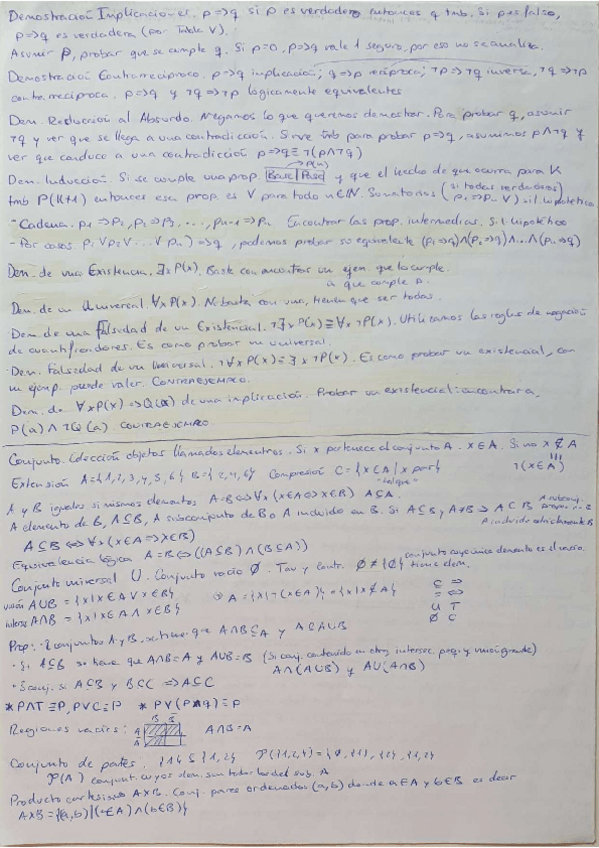 Demostración Implicaciones. p=>q si p es verdadero entonces q tmb. Si p es falso,
p=>q es verdadera (por Tabla V).
Asumir P, probar que se cumple q. Si p=0, p=>q vale 1 seguro, por eso no se analiza.
Demostración Contrarrecíproco. p=>q implicación; q=>p recíproca; ¬p=>¬q inversa, ¬q=>¬p
contrarrecíproca. p=>q y ¬q=>¬p lógicamente equivalentes
Dem. Reducción al Absurdo. Negamos lo que queremos demostrar. Para probar q, asumir
¬q y ver que se llega a una contradicción. Sirve tmb para probar p=>q, asumimos p∧¬q y
ver que conduce a una contradicción p=>q≡¬(p∧¬q)
Dem. Inducción. Si se cumple una prop. Base Paso P(n) y que el hecho de que ocurra para K
tmb P(K+1) entonces esa prop. es V para todo n∈N.
-Cadena. p1=>p2, p2=>p3, ..., pn-1=>pn Encontrar las prop. intermedias. Sil. hipotético
-Por casos. p1∨p2∨...∨pn)=>q, podemos probar su equivalente (p1=>q)∧(p2=>q)∧...∧(pn=>q)
Dem. de una Existencia. ∃x P(x). Basta con encontrar un ejem. que lo cumple.
Dem. de un Universal. ∀x P(x). No basta con una, tienen que ser todas.
Dem. de una Falsedad de un Existencial. ¬∃x P(x)≡∀x ¬P(x). Utilizamos las reglas de negación
de cuantificadores. Es como probar un universal.
Dem. Falsedad de un Universal. ¬∀x P(x)≡∃x ¬P(x). Es como probar un existencial, con
un ejemp. puede valer. CONTRAEJEMPLO.
Dem. de ∀x P(x)=>Q(x) de una implicación. Probar un existencial: encontrar a,
P(a)∧¬Q(a). CONTRAEJEMPLO
Conjunto. Colección objetos llamados elementos. Si x pertenece al conjunto A. x∈A. Si no x∉A
¬(x∈A)
Extensión A={1,2,3,4,5,6} B={2,4,6} Compresión C={x∈A|x par}
"tal que"
A y B iguales si mismos elementos A=B⇔∀x(x∈A⇔x∈B)
A elemento de B, A⊆B, A subconjunto de B o A incluido en B. Si A⊆B y A≠B => A⊂B
A incluido estrictamente B
A⊆B⇔∀x(x∈A=>x∈B)
Equivalencia lógica A=B⇔((A⊆B)∧(B⊆A))
Conjunto universal U. Conjunto vacío Ø. Ø≠{Ø} conjunto cuyo único elemento es el vacío.
unión A∪B={x|x∈A∨x∈B}
A={x|¬(x∈A)}={x|x∉A}
inters A∩B={x|x∈A∧x∈B}
⊆ =>
= ⇔
U T
Ø C
Prop: 2 conjuntos A y B, se tiene que A∩B⊆A y A⊆A∪B
· Si A⊆B se tiene que A∩B=A y A∪B=B
A∩(A∪B) y A∪(A∩B)
· 3 conj. si A⊆B y B⊆C =>A⊆C
* P∧T≡P, P∨C≡P * P∨(P∧q)≡P
Regiones vacías: A∩B=A
Conjunto de partes. {1}⊆{1,2} P({1,2})={Ø,{1},{2},{1,2}}
P(A) conjunt. cuyos elem. son todos los del sub. A
Producto cartesiano A×B. Conj. pares ordenados (a,b) donde a∈A y b∈B es decir
A×B={(a,b)|(a∈A)∧(b∈B)}